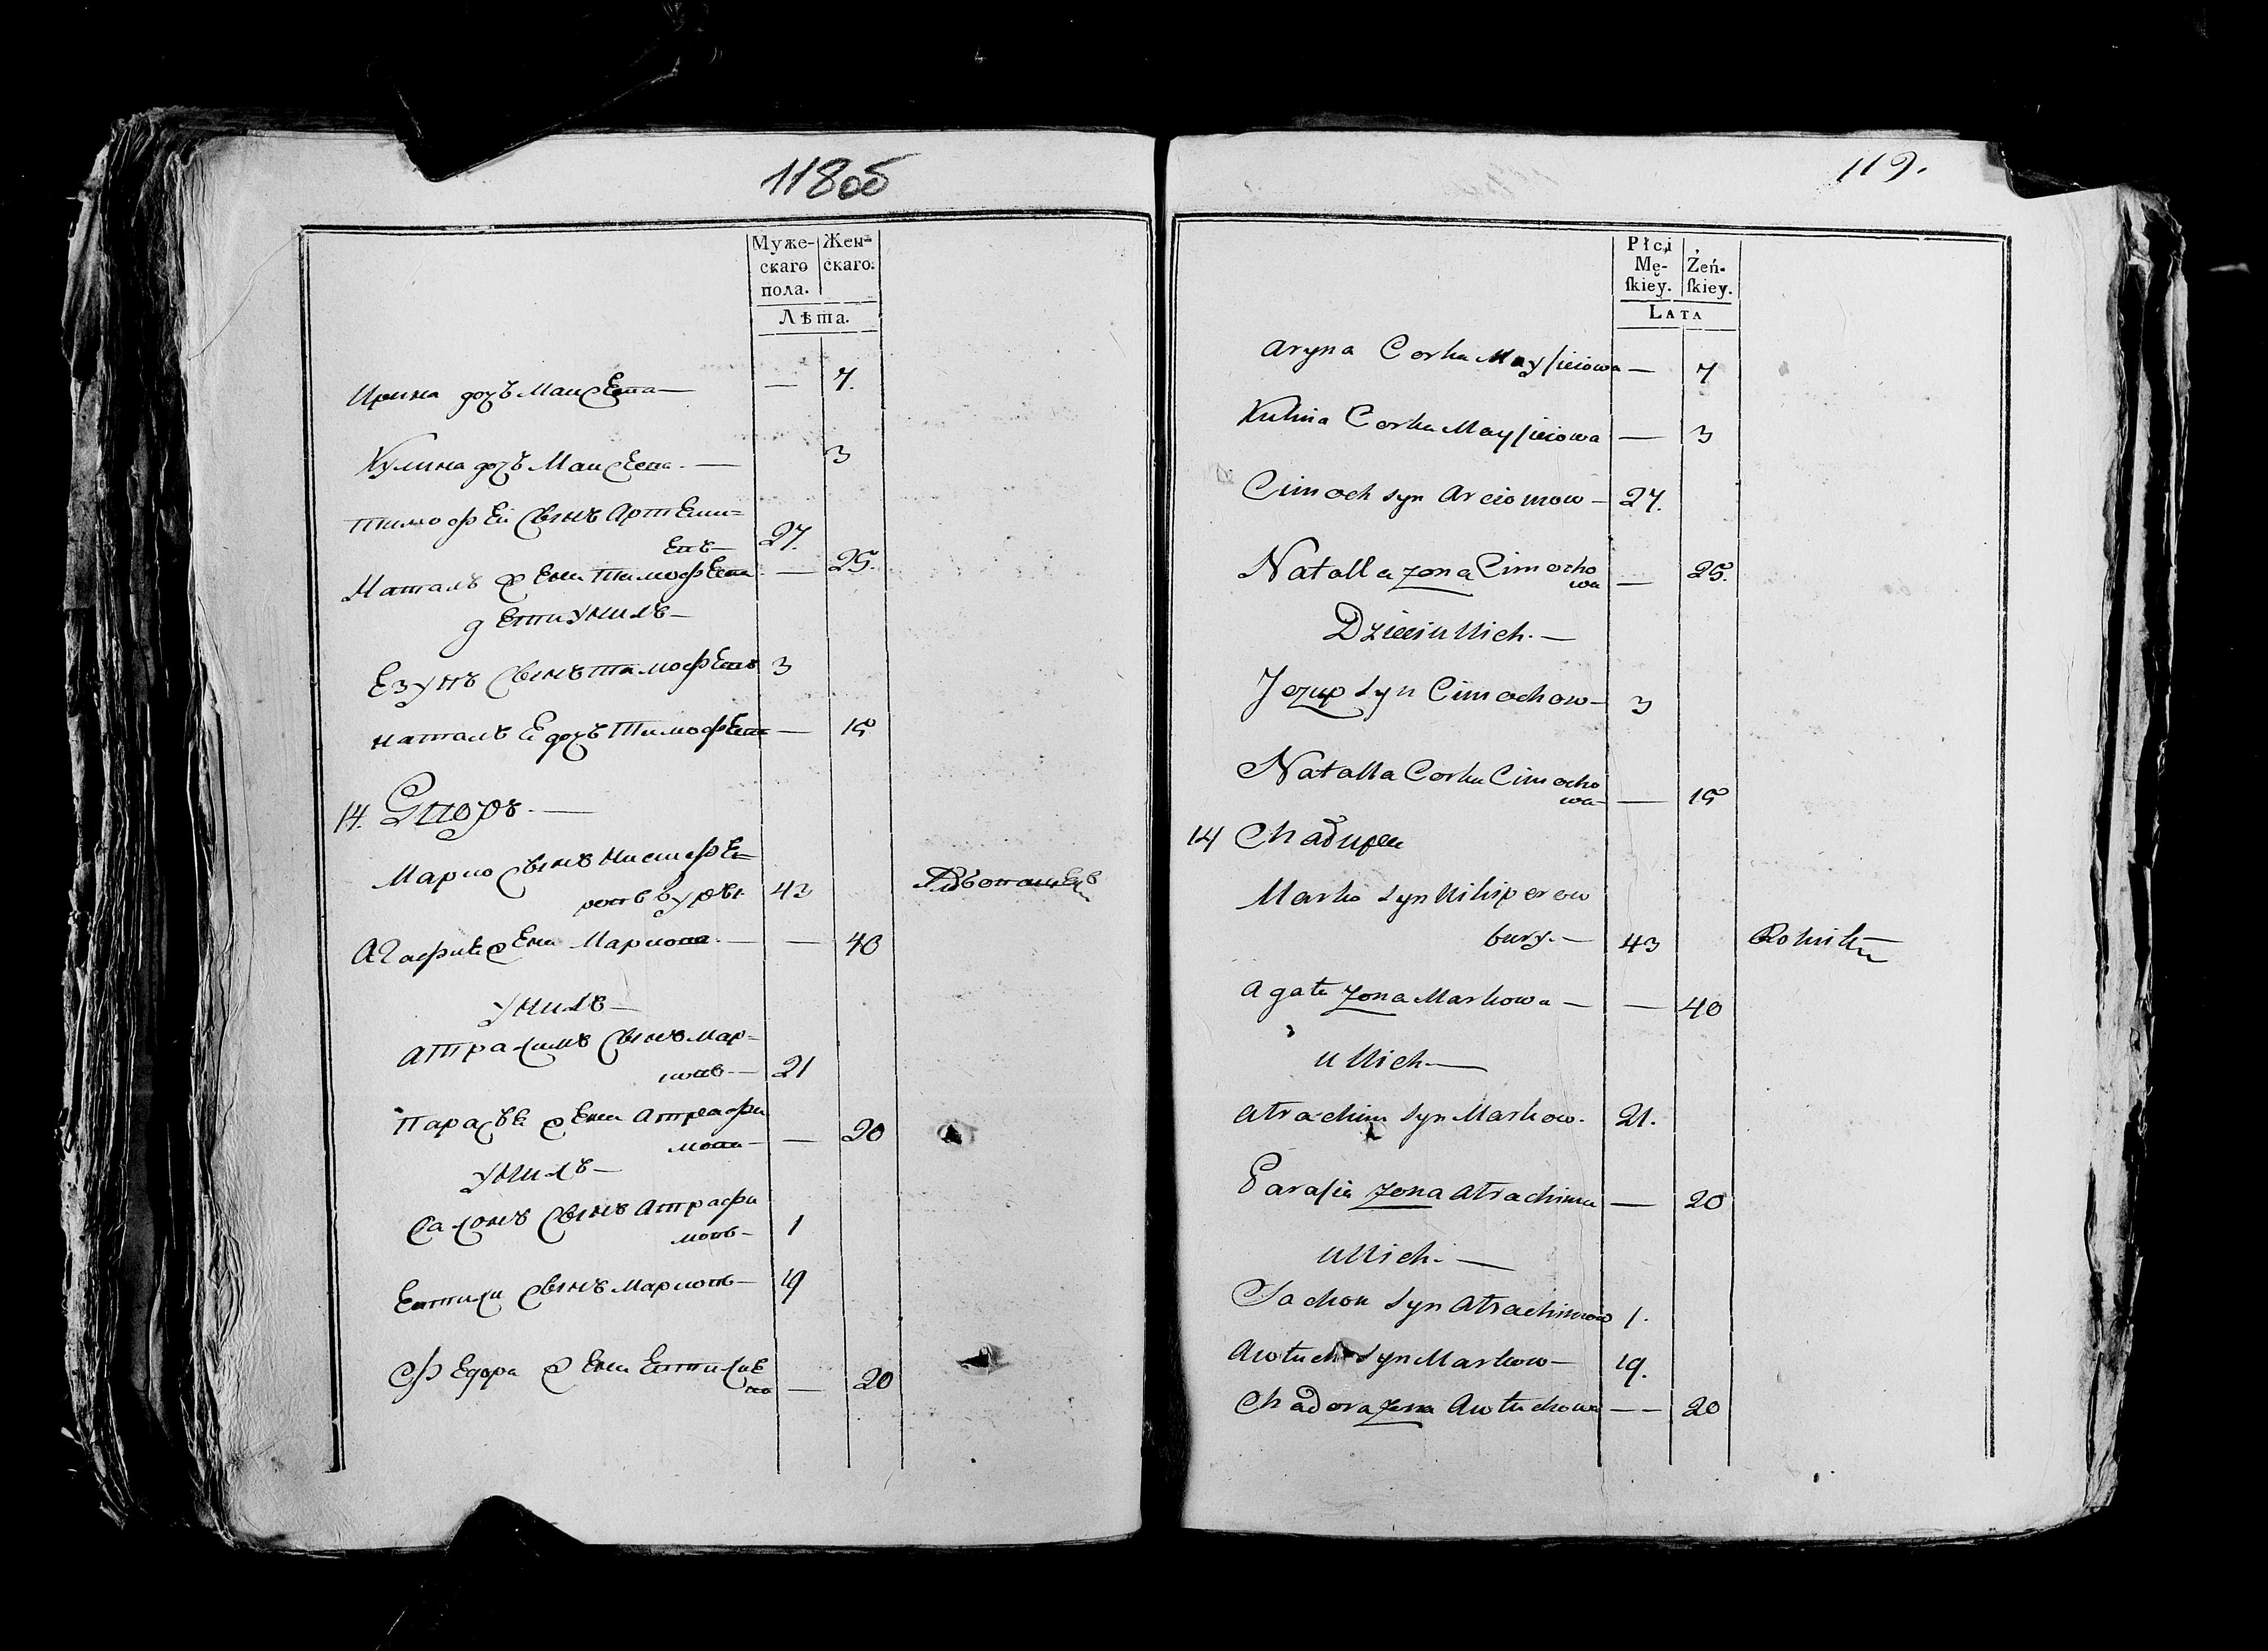 118об
Муже-
скаго
пола.
Жен-
скаго.
Лѣта.
Ирина дочъ Маисеева — — 7.
Кулина дочъ Маисеева. — 3
Тимофей сынъ Артеми=
евъ — 27.
Наталъ жена Тимофеева — 25.
дети у нихъ —
Езупъ сынъ Тимофеевъ 3
Наталъ е дочъ Тимофеев — 15
14. Дворъ. —
Марко сынъ Никифе=
ровъ Бурый 43
Агафия жена Маркова. — — 40
у нихъ —
Атрахимъ сынъ Мар=
ковъ — 21
Парасъв жена Атрафи
мова — — 20
у нихъ —
Сахонъ сынъ Атрафи
мовъ — 1
Евтихи сынъ Марковъ — 19
Федора жена Евтихие
ва — 20
119.
Płci
Mę-
ſkiey.
Żeń-
ſkiey.
LATA
Aryna Corka Mayſieiowa — 7
Kulina Corka Mayſieiowa — 3
Cimoch syn Arciomow — 27.
Natalla zona Cimocho
wa — 25.
Dzieci u Nich. —
Jezup syn Cimochow — 3
Natalla Corka Cimocho
wa — — 15
14 Chałupa
Marko syn Nikiperow
bury. — 43 Rolnik
Agata zona Markowa — — 40
u Nich —
Atrachim syn Markow. 21.
Paraſia zona Atrachima — 20
u Nich. —
Sachon syn Atrachimow 1.
Awtuch syn Markow — 19.
Chadora zona Awtuchowa — — 20